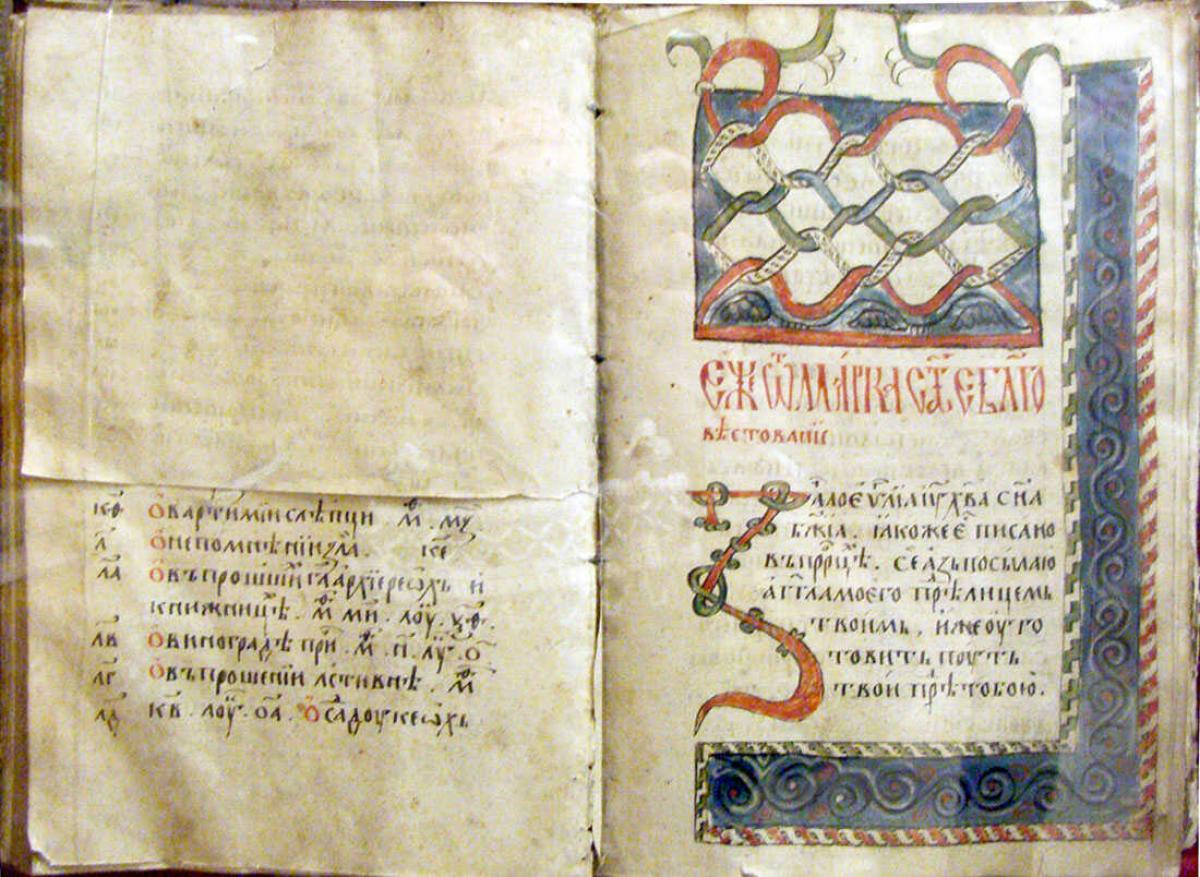 к҃ѳ О вартимїи слѣпци . м҃ѳ . м҃г .
л҃ О непомнѣнїи зла . к҃е
л҃а О въпрошши гл҃ архїереѡхъ и
книжницѣ . м҃ѳ м҃и . лоу҃ . ѯ҃ѳ .
л҃в О виноградѣ при҃ . м҃ѳ . н҃ . лу҃ . о҃
л҃г О въпрошенїи лстивнѣ . м҃ѳ
л҃д к҃в . лоу҃ . о҃а . О садоукеѡхъ
Еже ѿ марка ст҃е бл҃го
вѣстованїе
Зачало еѵⷢ҇лїа іу҃ х҃ва сн҃а
бж҃їа . ꙗкоже е҃ писано
въ прⷪ҇рцѣ . се азъ посылаю
агг҃ла моего прѣⷣ лицемь
твоимь , иже оуго
товить поуть
твои прѣⷣ тобою .